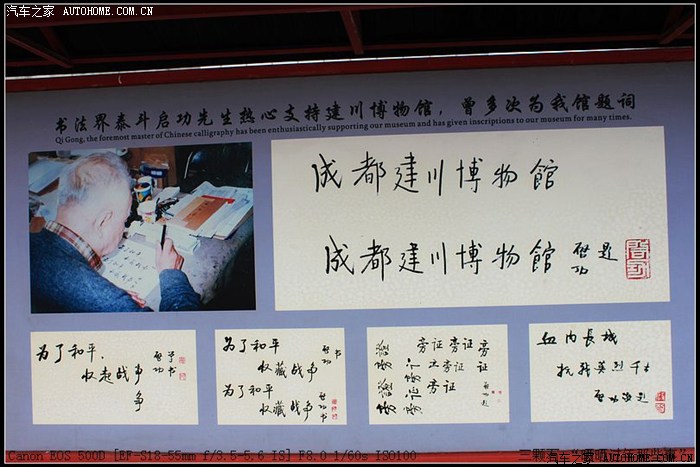 汽车之家 AUTOHOME.COM.CN
书法界泰斗启功先生热心支持建川博物馆，曾多次为我馆题词
Qi Gong, the foremost master of Chinese calligraphy has been enthusiastically supporting our museum and has given inscriptions to our museum for many times.
成都建川博物馆
成都建川博物馆 启功题
为了和平，
收起战争
启功
为了和平
收藏战争
为了和平
收藏战争
启功书
旁证旁证旁
证
旁证
旁证
血肉長城
抗战英烈千古
启功敬题
Canon EOS 500D [EF-S18-55mm f/3.5-5.6 IS] F8.0 1/60s ISO100
汽车之家 AUTOHOME.COM.CN